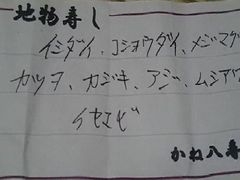 地物寿し
イシダイ、コショウダイ、メジマグ
カツヲ、カジキ、アジ、ムシアワ
イセエビ
かね八寿